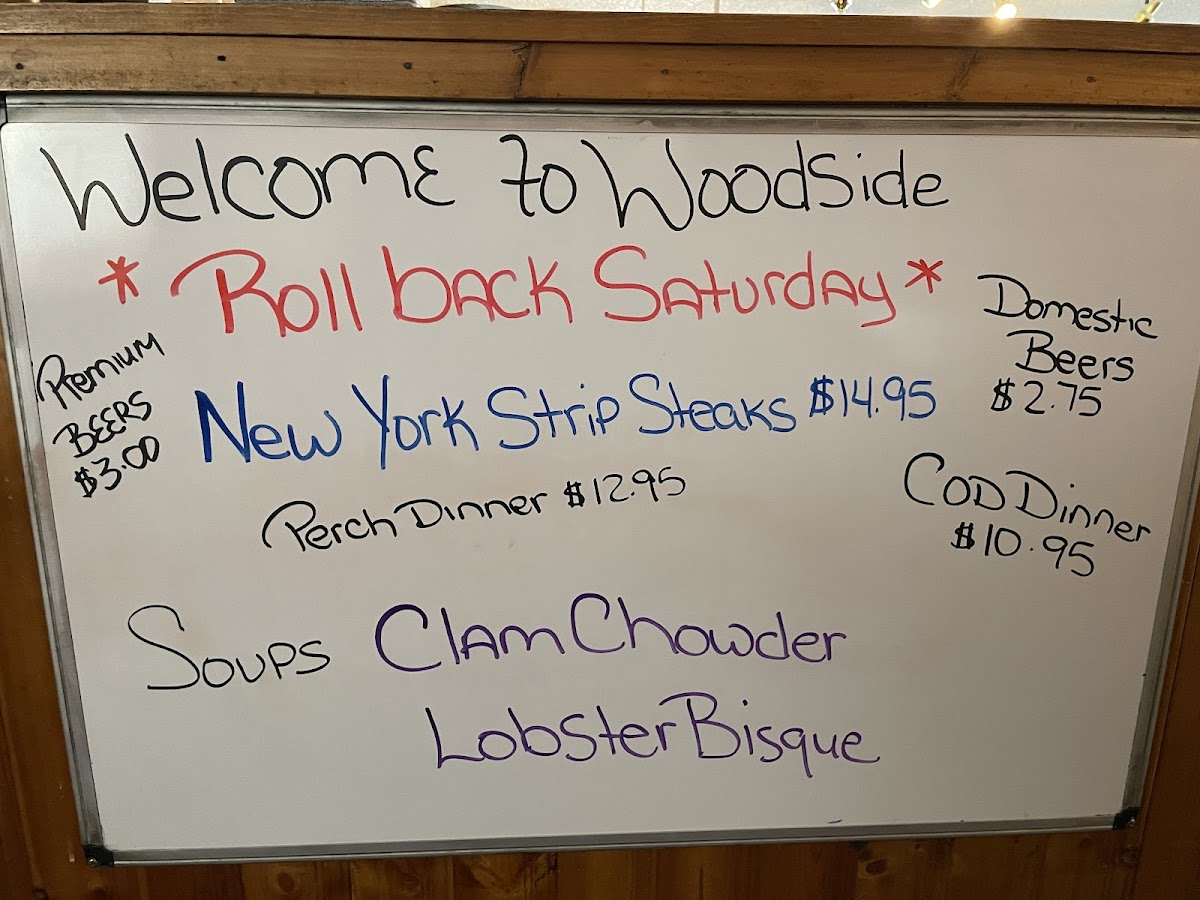 Welcome to Woodside
* Roll back Saturday *
Premium
BEERS
$3.00
Domestic
Beers
$2.75
New York Strip Steaks $14.95
Perch Dinner $12.95
Cod Dinner
$10.95
Soups Clam Chowder
Lobster Bisque